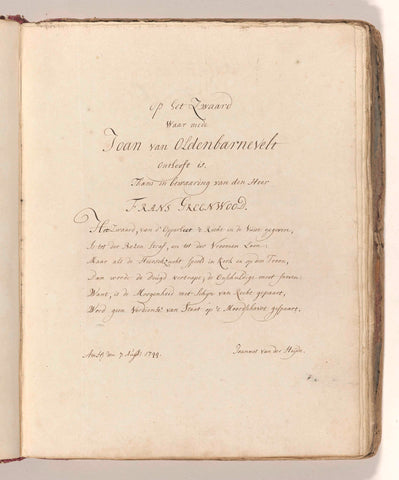 op het Zwaard
Waar mede
Joan van Oldenbarnevelt
Onthooft is.
Thans in bewaaring van den Heer
FRANS GREENWOOD.
Het Zwaard, van d'Opperheit 't Recht in de Vuist gegeven,
Is tot der Bozen Straf, en tot der Vroomen Loon:
Maar als de Heerschzucht speelt in Kerk en op den Troon,
Dan word de Deugd vertrapt, de Onschuldige moet sneven.
Want, is de Mogenheid met schijn van Recht gepaart,
Word geen Verdienst van Staat op 't Moordschavot gespaart.
Amst. den 7 Aug. 1744.
van der Heijde.